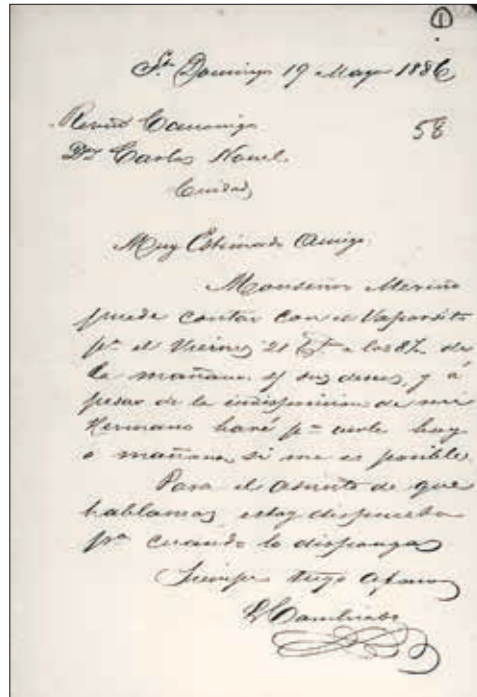 1
Sto Domingo 19 Mayo 1886
58
Revdo Canonigo
Dn Carlos Nouel.
Ciudad
Muy Estimado Amigo:
Monseñor Meriño
puede contar con el Vaporsito
pa el Viernes 21 a las 8½ de
la mañana si sus deseos, y á
pesar de la indisposicion de mi
Hermano haré pa verte hoy
o mañana, si me es posible.
Para el asunto de que
hablamos estoy dispuesto
pa cuando lo dispongas
Siempre tuyo afmo